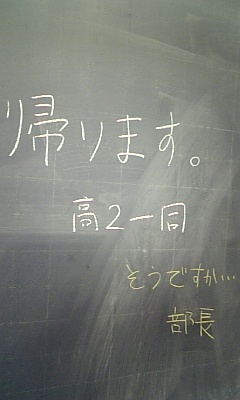 帰ります。
高2一同
そうですか…
部長